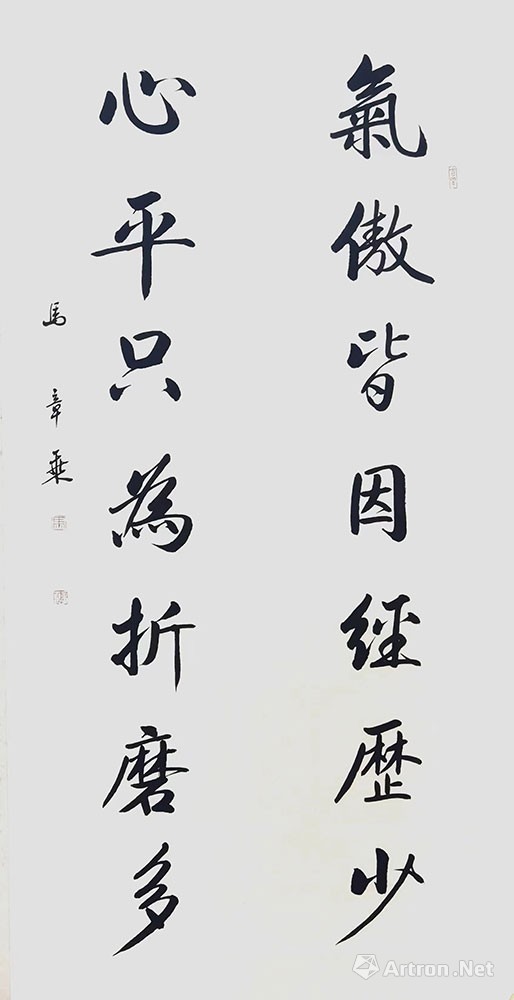 氣傲皆因經歷少
心平只為折磨多
馬章乗
Artron.Net